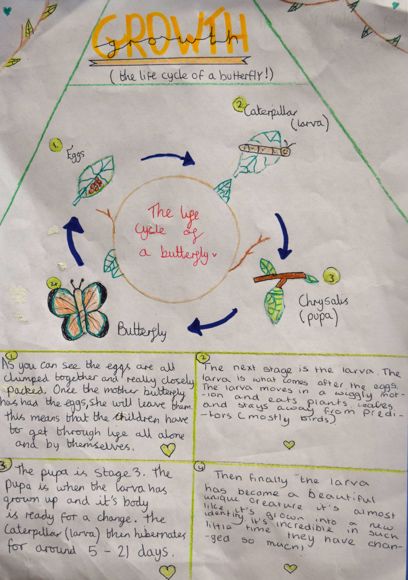 GROWTH
growth
(the life cycle of a butterfly!)
2
Caterpillar
(larva)
1
Eggs
The life
cycle of
a butterfly
3
Chrysalis
(pupa)
Butterfly
1
As you can see the eggs are all
clumped together and really closely
packed. Once the mother butterfly
has has the eggs, she will leave them
this means that the children have
to get through life all alone
and by themselves.
2
The next stage is the larva. The
larva is what comes after the eggs.
The larva moves in a wiggly mot-
ion and eats plants, leaves
and stays away from predi-
tors (mostly birds)
3
The pupa is stage 3. the
pupa is when the larva has
grown up and it's body
is ready for a change. The
Caterpillar (larva) then hibernates
for around 5 - 21 days.
4
Then finally the larva
has become a beautiful
unique creature it's almost
like it's grown into a new
identity it's incredible in such
little time they have chan-
ged so much!